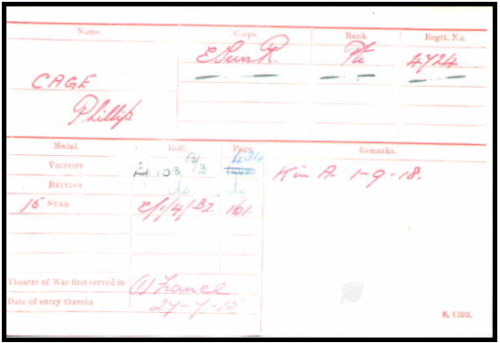 Name. Corps. Rank. Regtl. No.
E. Surr. R. Pte 4724
CAGE
Phillip
Medal. Roll. Page. Remarks.
VICTORY 103 B13
BRITISH do do
15 STAR C/1/4/B2 161.
K in A. 1-9-18.
Theatre of War first served in (1) France
Date of entry therein 27-7-15
K. 1380.